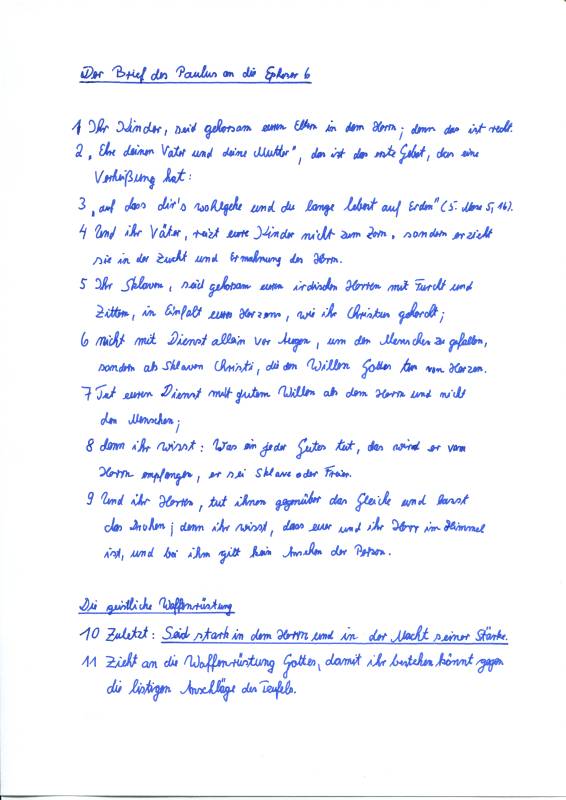 Der Brief des Paulus an die Epheser 6
1 Ihr Kinder, seid gehorsam euren Eltern in dem Herrn; denn das ist recht.
2 „Ehre deinen Vater und deine Mutter", das ist das erste Gebot, das eine
Verheißung hat:
3 „auf dass dir's wohlgehe und du lange lebest auf Erden" (5. Mose 5, 16).
4 Und ihr Väter, reizt eure Kinder nicht zum Zorn, sondern erzieht
sie in der Zucht und Ermahnung des Herrn.
5 Ihr Sklaven, seid gehorsam euren irdischen Herren mit Furcht und
Zittern, in Einfalt eures Herzens, wie ihr Christus gehorcht;
6 nicht mit Dienst allein vor Augen, um den Menschen zu gefallen,
sondern als Sklaven Christi, die den Willen Gottes tun von Herzen.
7 Tut euren Dienst mit gutem Willen als dem Herrn und nicht
den Menschen;
8 denn ihr wisst: Was ein jeder Gutes tut, das wird er vom
Herrn empfangen, er sei Sklave oder Freier.
9 Und ihr Herren, tut ihnen gegenüber das Gleiche und lasst
das Drohen; denn ihr wisst, dass euer und ihr Herr im Himmel
ist, und bei ihm gilt kein Ansehen der Person.
Die geistliche Waffenrüstung
10 Zuletzt: Seid stark in dem Herrn und in der Macht seiner Stärke.
11 Zieht an die Waffenrüstung Gottes, damit ihr bestehen könnt gegen
die listigen Anschläge des Teufels.